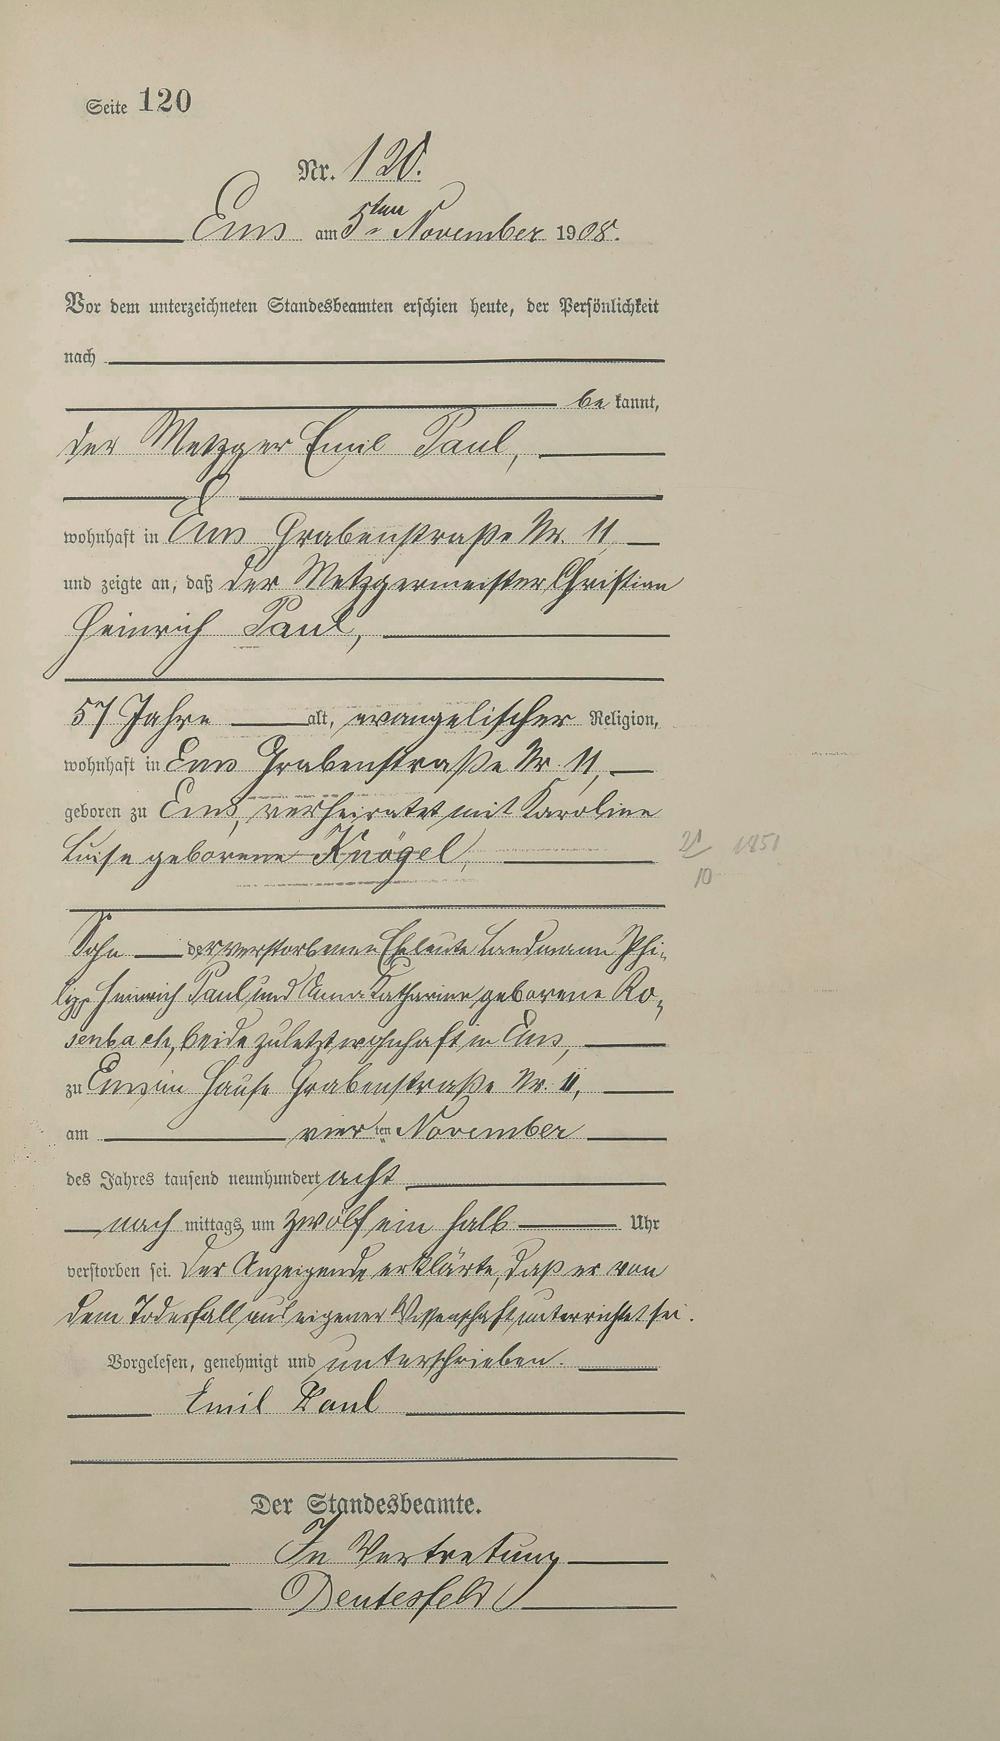 Seite 120
Nr. 120.
Ems am 5ten November 1908.
Vor dem unterzeichneten Standesbeamten erschien heute, der Persönlichkeit
nach
be kannt,
der Metzger Emil Paul,
wohnhaft in Ems Grabenstraße Nr. 11
und zeigte an, daß der Metzgermeister Christian
Heinrich Paul,
57 Jahre alt, evangelischer Religion,
wohnhaft in Ems Grabenstraße Nr. 11,
geboren zu Ems, verheiratet mit Karoline
Luise geborene Knögel,
21/10 1851
Sohn der verstorbenen Eheleute Landmann Phi-
lipp Heinrich Paul und Anna Katharine geborene Ro-
senbach, beide zuletzt wohnhaft in Ems,
zu Ems im Hause Grabenstraße Nr. 11,
am vierten November
des Jahres tausend neunhundert acht
nach mittags um zwölf ein halb Uhr
verstorben sei. Der Anzeigende erklärte, daß er von
dem Todesfall aus eigener Wissenschaft unterrichtet sei.
Vorgelesen, genehmigt und unterschrieben.
Emil Paul
Der Standesbeamte.
In Vertretung